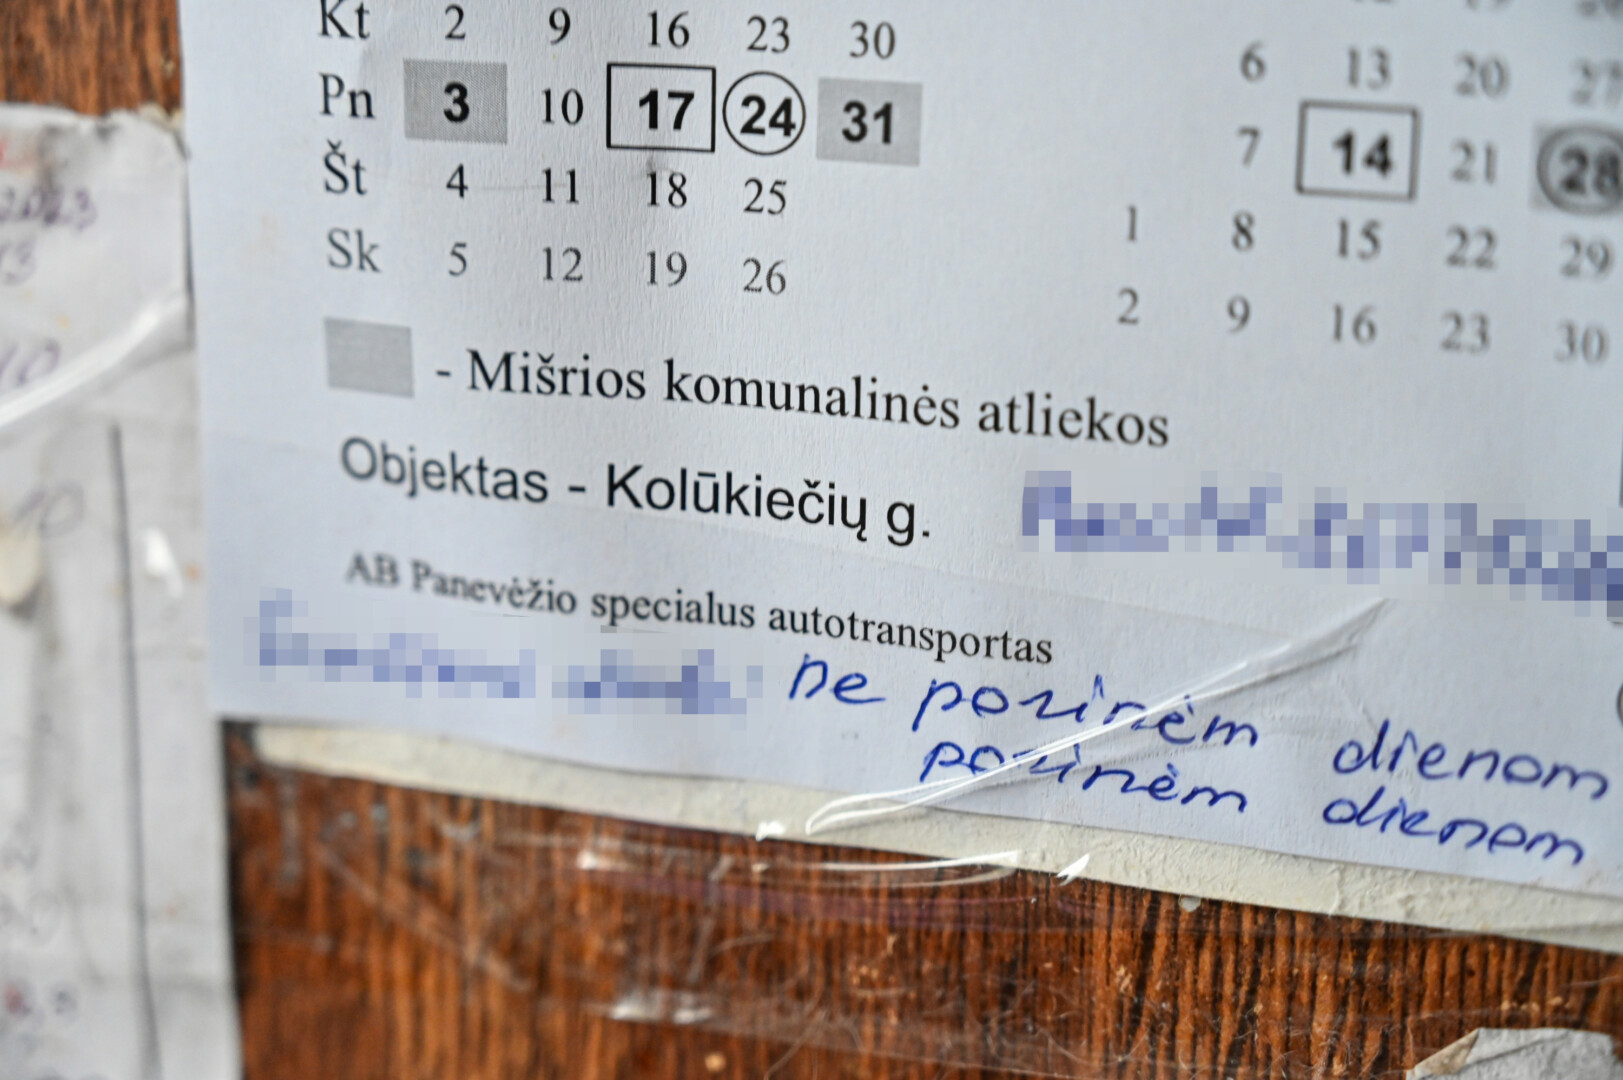 Kt 2 9 16 23 30
Pn 3 10 17 24 31
Št 4 11 18 25
Sk 5 12 19 26
6 13 20 27
7 14 21 28
1 8 15 22 29
2 9 16 23 30
- Mišrios komunalinės atliekos
Objektas - Kolūkiečių g.
AB Panevėžio specialus autotransportas
ne porinėm dienom
porinėm dienom